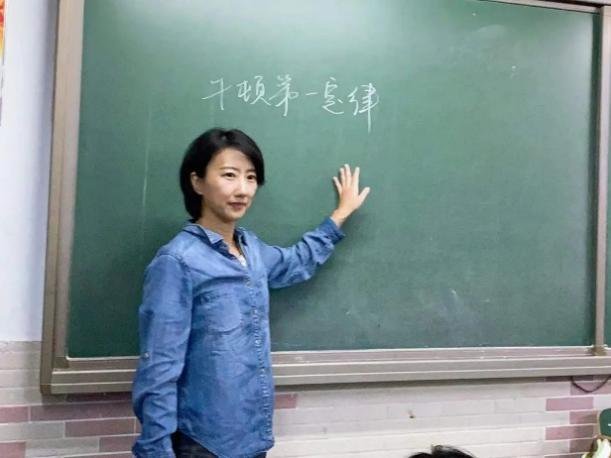 牛顿第一定律